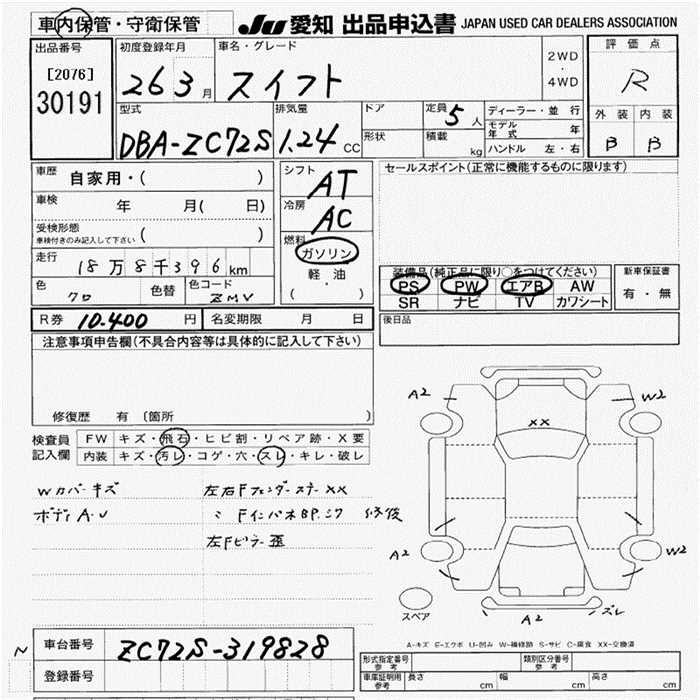 車内保管・守衛保管
JU 愛知 出品申込書 JAPAN USED CAR DEALERS ASSOCIATION
出品番号
[2076]
30191
初度登録年月
26 3 月
車名・グレード
スイフト
2WD
・
4WD
評価点
R
外装 内装
B B
型式
DBA-ZC72S
排気量
1.24 CC
ドア
形状
定員 5 人
積載 kg
ディーラー・並行
モデル年式 年
ハンドル 左・右
車歴 自家用・( )
車検 年 月( 日)
受検形態
車検付きのみ記入して下さい ( )
走行 18万8千396km
色 クロ
色替
色コード ZMV
シフト
AT
冷房
AC
燃料
ガソリン
軽・油
( ・ )
セールスポイント(正常に機能するものに限ります)
装備品(純正品に限り○をつけてください)
PS PW エアB AW
SR ナビ TV カワシート
新車保証書
有・無
R券 10.400 円
名変期限 月 日
後日品
注意事項申告欄(不具合内容等は具体的に記入して下さい)
修復歴 有 〔箇所 〕
検査員記入欄
FW キズ・飛石・ヒビ割・リペア跡・X要
内装 キズ・汚レ・コゲ・穴・スレ・キレ・破レ
Wカバーキズ
ボディA.U
左右Fフェンダーステーxx
〃 FインパネBP.シワ 修後
左Fピラー歪
A2
W2
XX
A2
W2
スペア
A2
ズレ
A-キズ E-エクボ U-凹み W-補修跡 S-サビ C-腐食 XX-交換済
N
車台番号 ZC72S-319828
登録番号
形式指定番号
参考
類別区分番号
参考
車庫証明用
参考
長さ cm
幅 cm
高さ cm